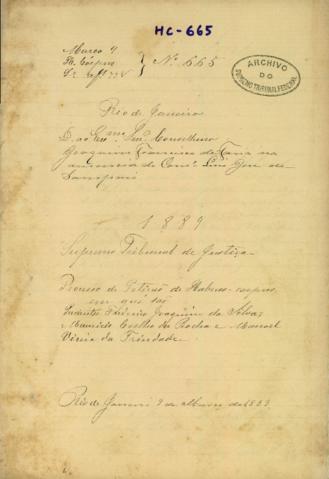 HC-665
Março 9
Hb. Corpus
Nº 665
ARCHIVO
DO
SUPREMO TRIBUNAL FEDERAL
Rio de Janeiro
D. ao Exmo. Snr. Conselheiro
Joaquim de Faria na
ausencia do Consº. Luiz José de
Sampaio
1889
Supremo Tribunal de Justiça
Petição de Habeas-corpus,
em que são
Joaquim da Silva,
Mauricio Coelho da Rocha e Manoel
Vieira da Trindade
Rio de Janeiro 9 de Março de 1889.